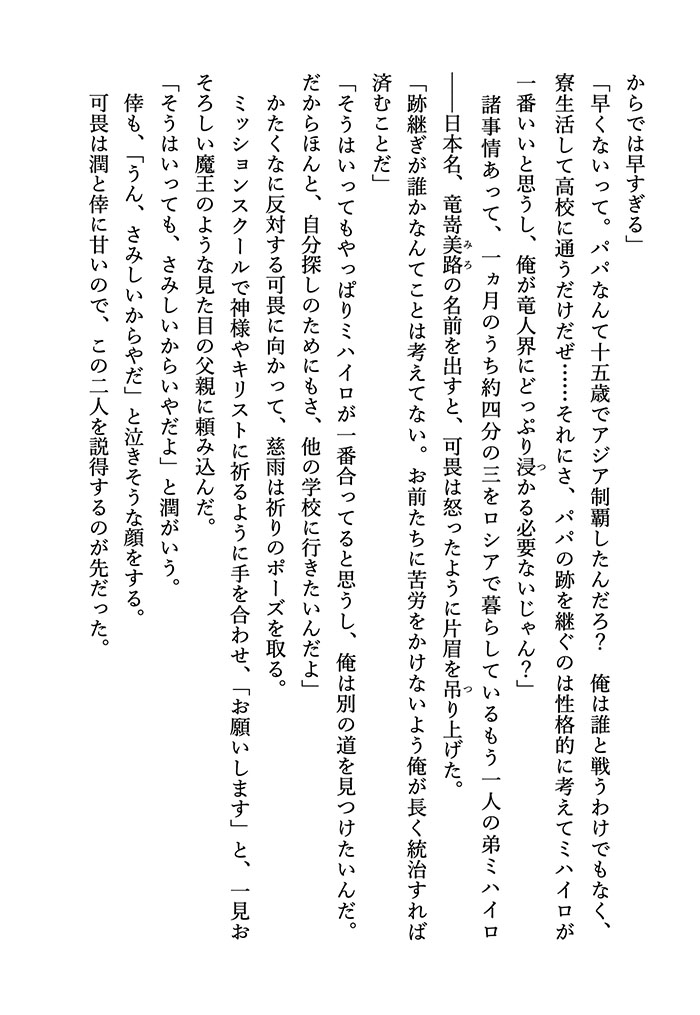 からでは早すぎる」
「早くないって。パパなんて十五歳でアジア制覇したんだろ？　俺は誰と戦うわけでもなく、
寮生活して高校に通うだけだぜ……それにさ、パパの跡を継ぐのは性格的に考えてミハイロが
一番いいと思うし、俺が竜人界にどっぷり浸つかる必要ないじゃん？」
諸事情あって、一ヵ月のうち約四分の三をロシアで暮らしているもう一人の弟ミハイロ
――日本名、竜嵜美路みろの名前を出すと、可畏は怒ったように片眉を吊つり上げた。
「跡継ぎが誰かなんてことは考えてない。お前たちに苦労をかけないよう俺が長く統治すれば
済むことだ」
「そうはいってもやっぱりミハイロが一番合ってると思うし、俺は別の道を見つけたいんだ。
だからほんと、自分探しのためにもさ、他の学校に行きたいんだよ」
かたくなに反対する可畏に向かって、慈雨は祈りのポーズを取る。
ミッションスクールで神様やキリストに祈るように手を合わせ、「お願いします」と、一見お
そろしい魔王のような見た目の父親に頼み込んだ。
「そうはいっても、さみしいからいやだよ」と潤がいう。
倖も、「うん、さみしいからやだ」と泣きそうな顔をする。
可畏は潤と倖に甘いので、この二人を説得するのが先だった。